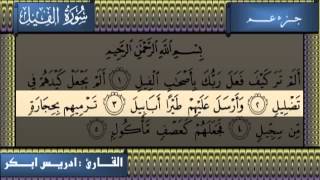 جزء عم
سُورَةُ الْفِيلِ
بِسْمِ اللَّهِ الرَّحْمَٰنِ الرَّحِيمِ
أَلَمْ تَرَ كَيْفَ فَعَلَ رَبُّكَ بِأَصْحَابِ الْفِيلِ ١ أَلَمْ يَجْعَلْ كَيْدَهُمْ فِي
تَضْلِيلٍ ٢ وَأَرْسَلَ عَلَيْهِمْ طَيْرًا أَبَابِيلَ ٣ تَرْمِيهِم بِحِجَارَةٍ
مِّن سِجِّيلٍ ٤ فَجَعَلَهُمْ كَعَصْفٍ مَّأْكُولٍ ٥
القارئ : ادريس ابكر